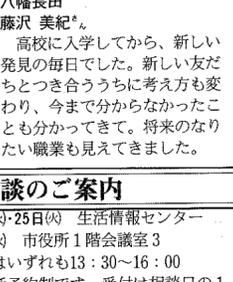 八幡長田
藤沢 美紀さん
高校に入学してから、新しい
発見の毎日でした。新しい友だ
ちとつき合ううちに考え方も変
わり、今まで分からなかったこ
とも分かってきて。将来のなり
たい職業も見えてきました。
談のご案内
㈫・25日㈫ 生活情報センター
市役所1階会議室3
はいずれも13：30〜16：00